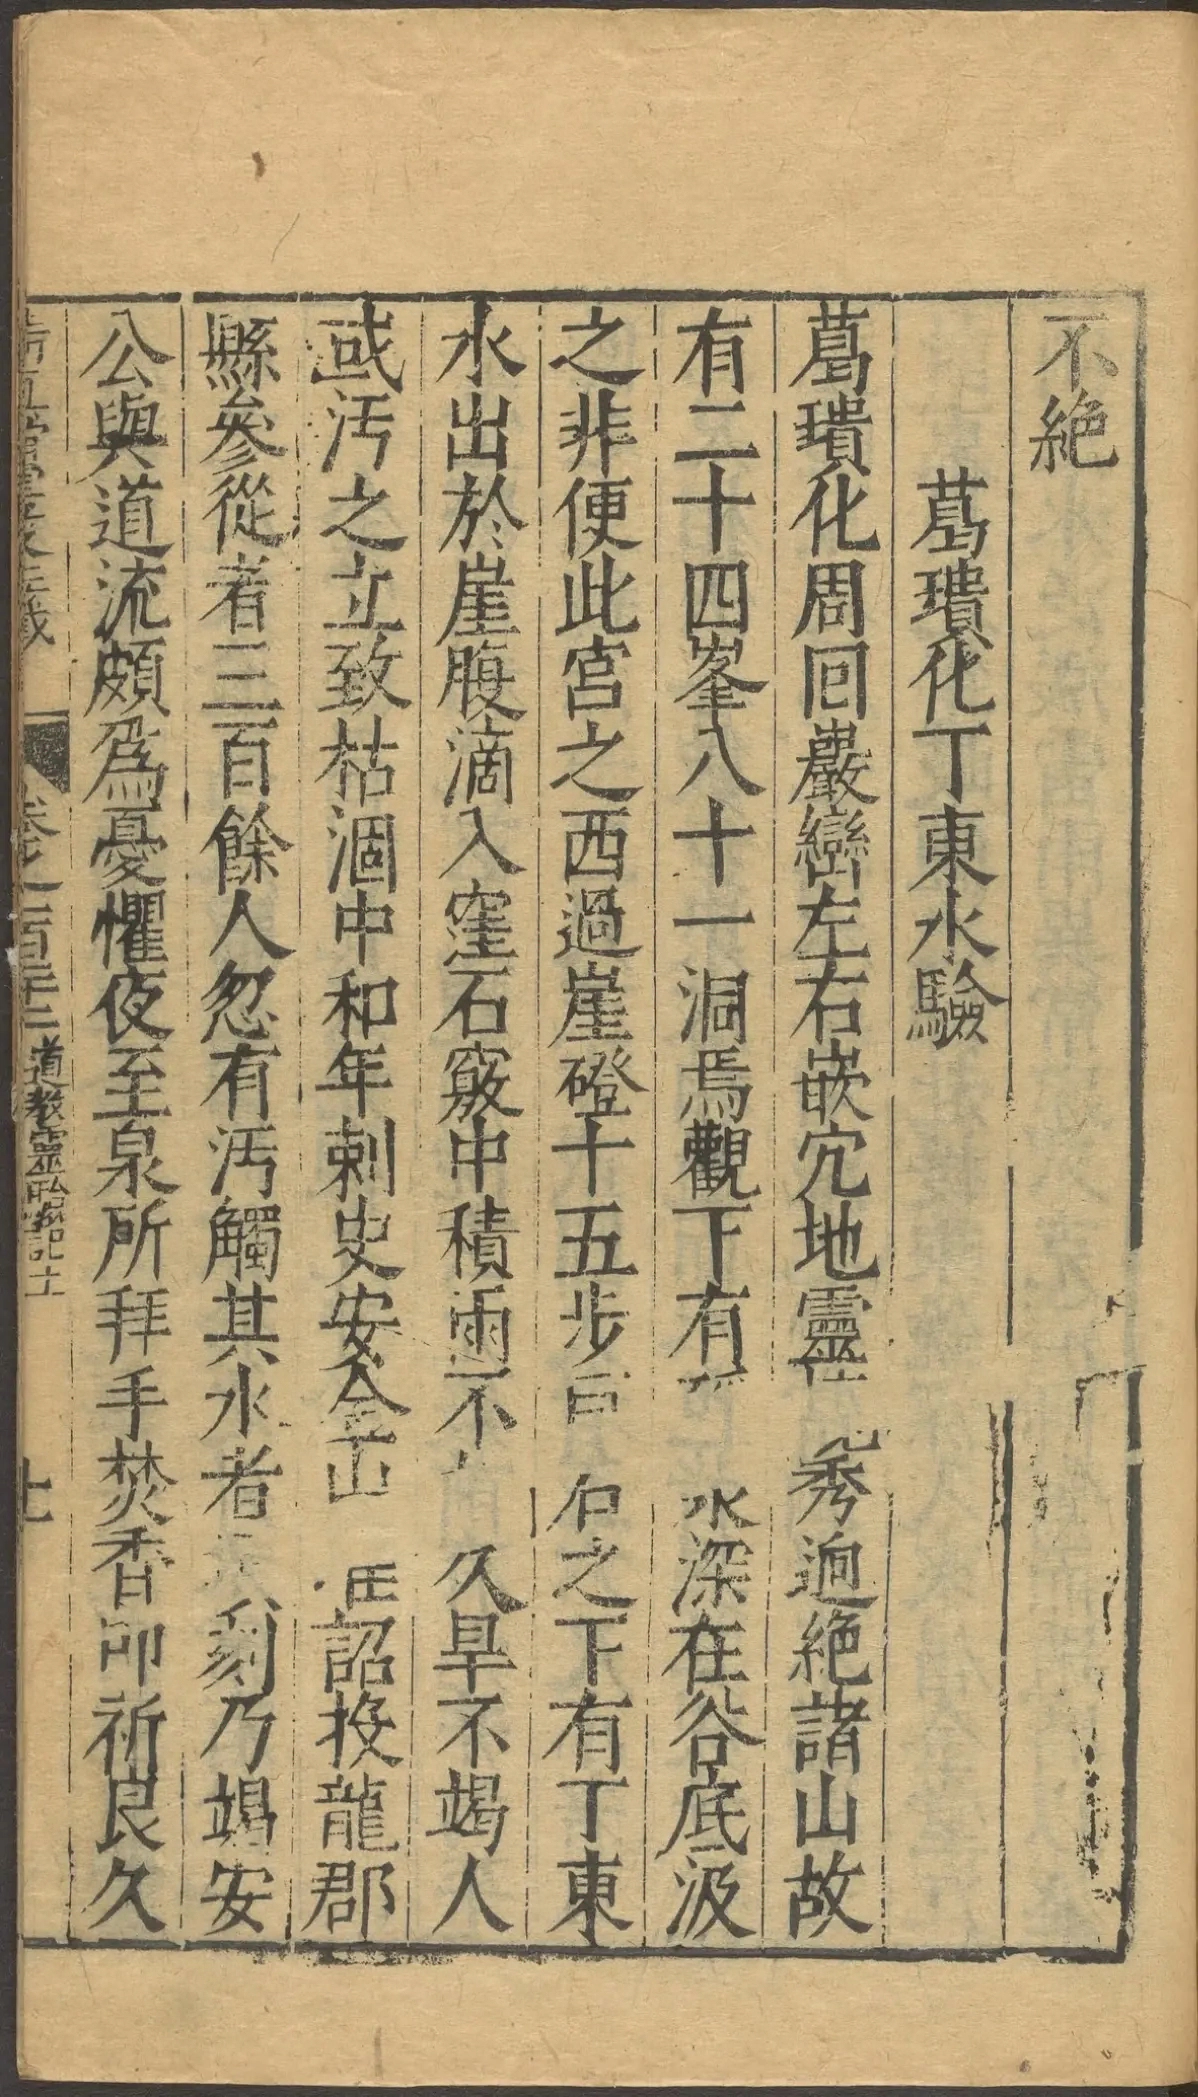 不絶
葛璝化丁東水驗
葛璝化周回巖巒左右嵌穴地靈 秀迥絶諸山故
有二十四峯八十一洞焉觀下有 水深在谷底汲
之非便此宮之西過崖磴十五步 石之下有丁東
水出於崖腹滴入窪石竅中積雨不 久旱不竭人
或汚之立致枯涸中和年刺史安金山 詔投龍郡
縣參從者三百餘人忽有汚觸其水者 刻乃竭安
公與道流頗爲憂懼夜至泉所拜手焚香叩祈良久
卷之一百 道教靈驗記